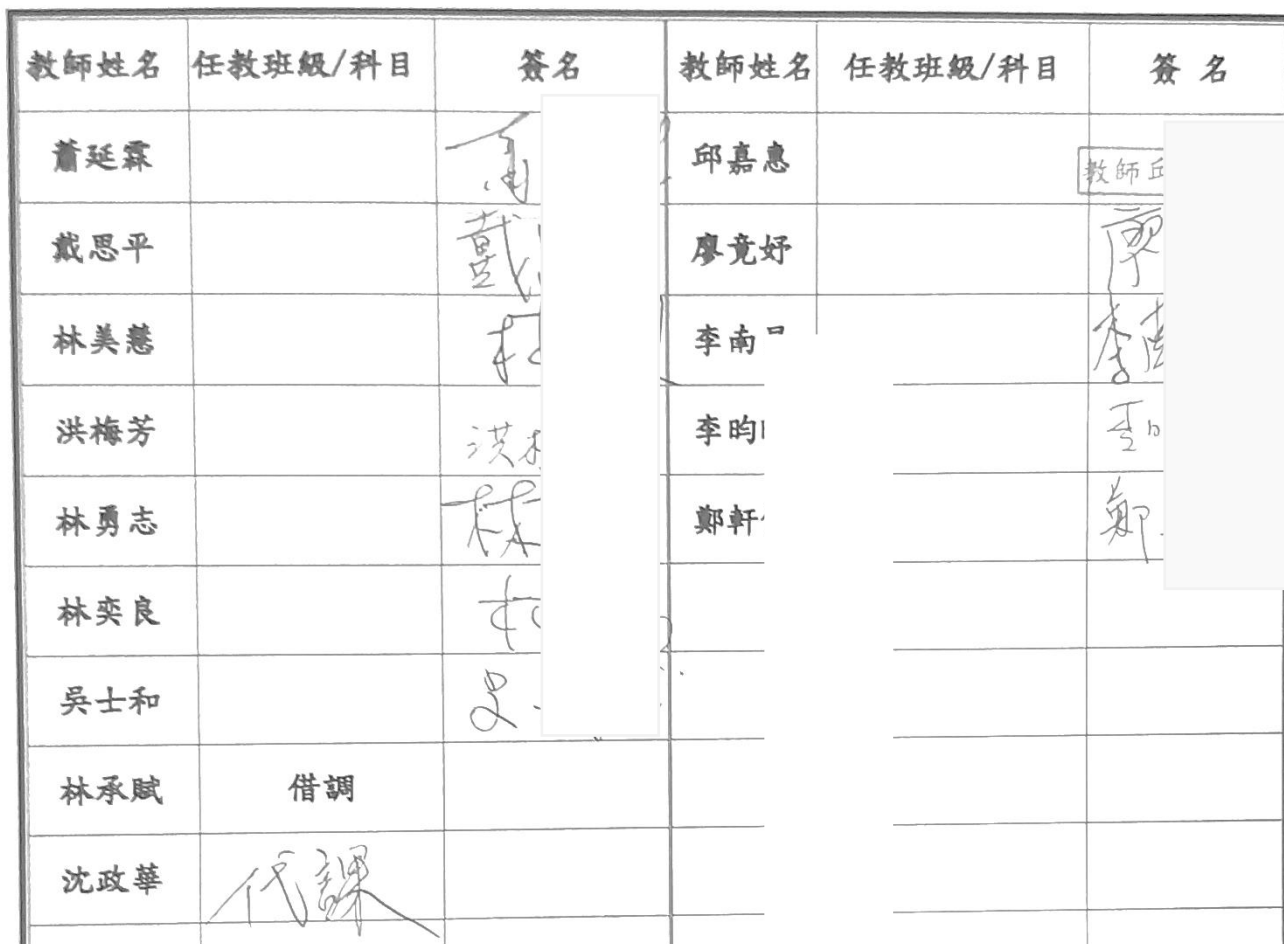 教師姓名 任教班級/科目 簽名 教師姓名 任教班級/科目 簽 名
蕭延霖 邱嘉惠 教師丘
戴思平 戴 廖竟妤 廖
林美慧 李南 李南
洪梅芳 洪 李昀 李昀
林勇志 林 鄭軒 鄭
林奕良
吳士和 吳
林承賦 借調
沈政華 代課